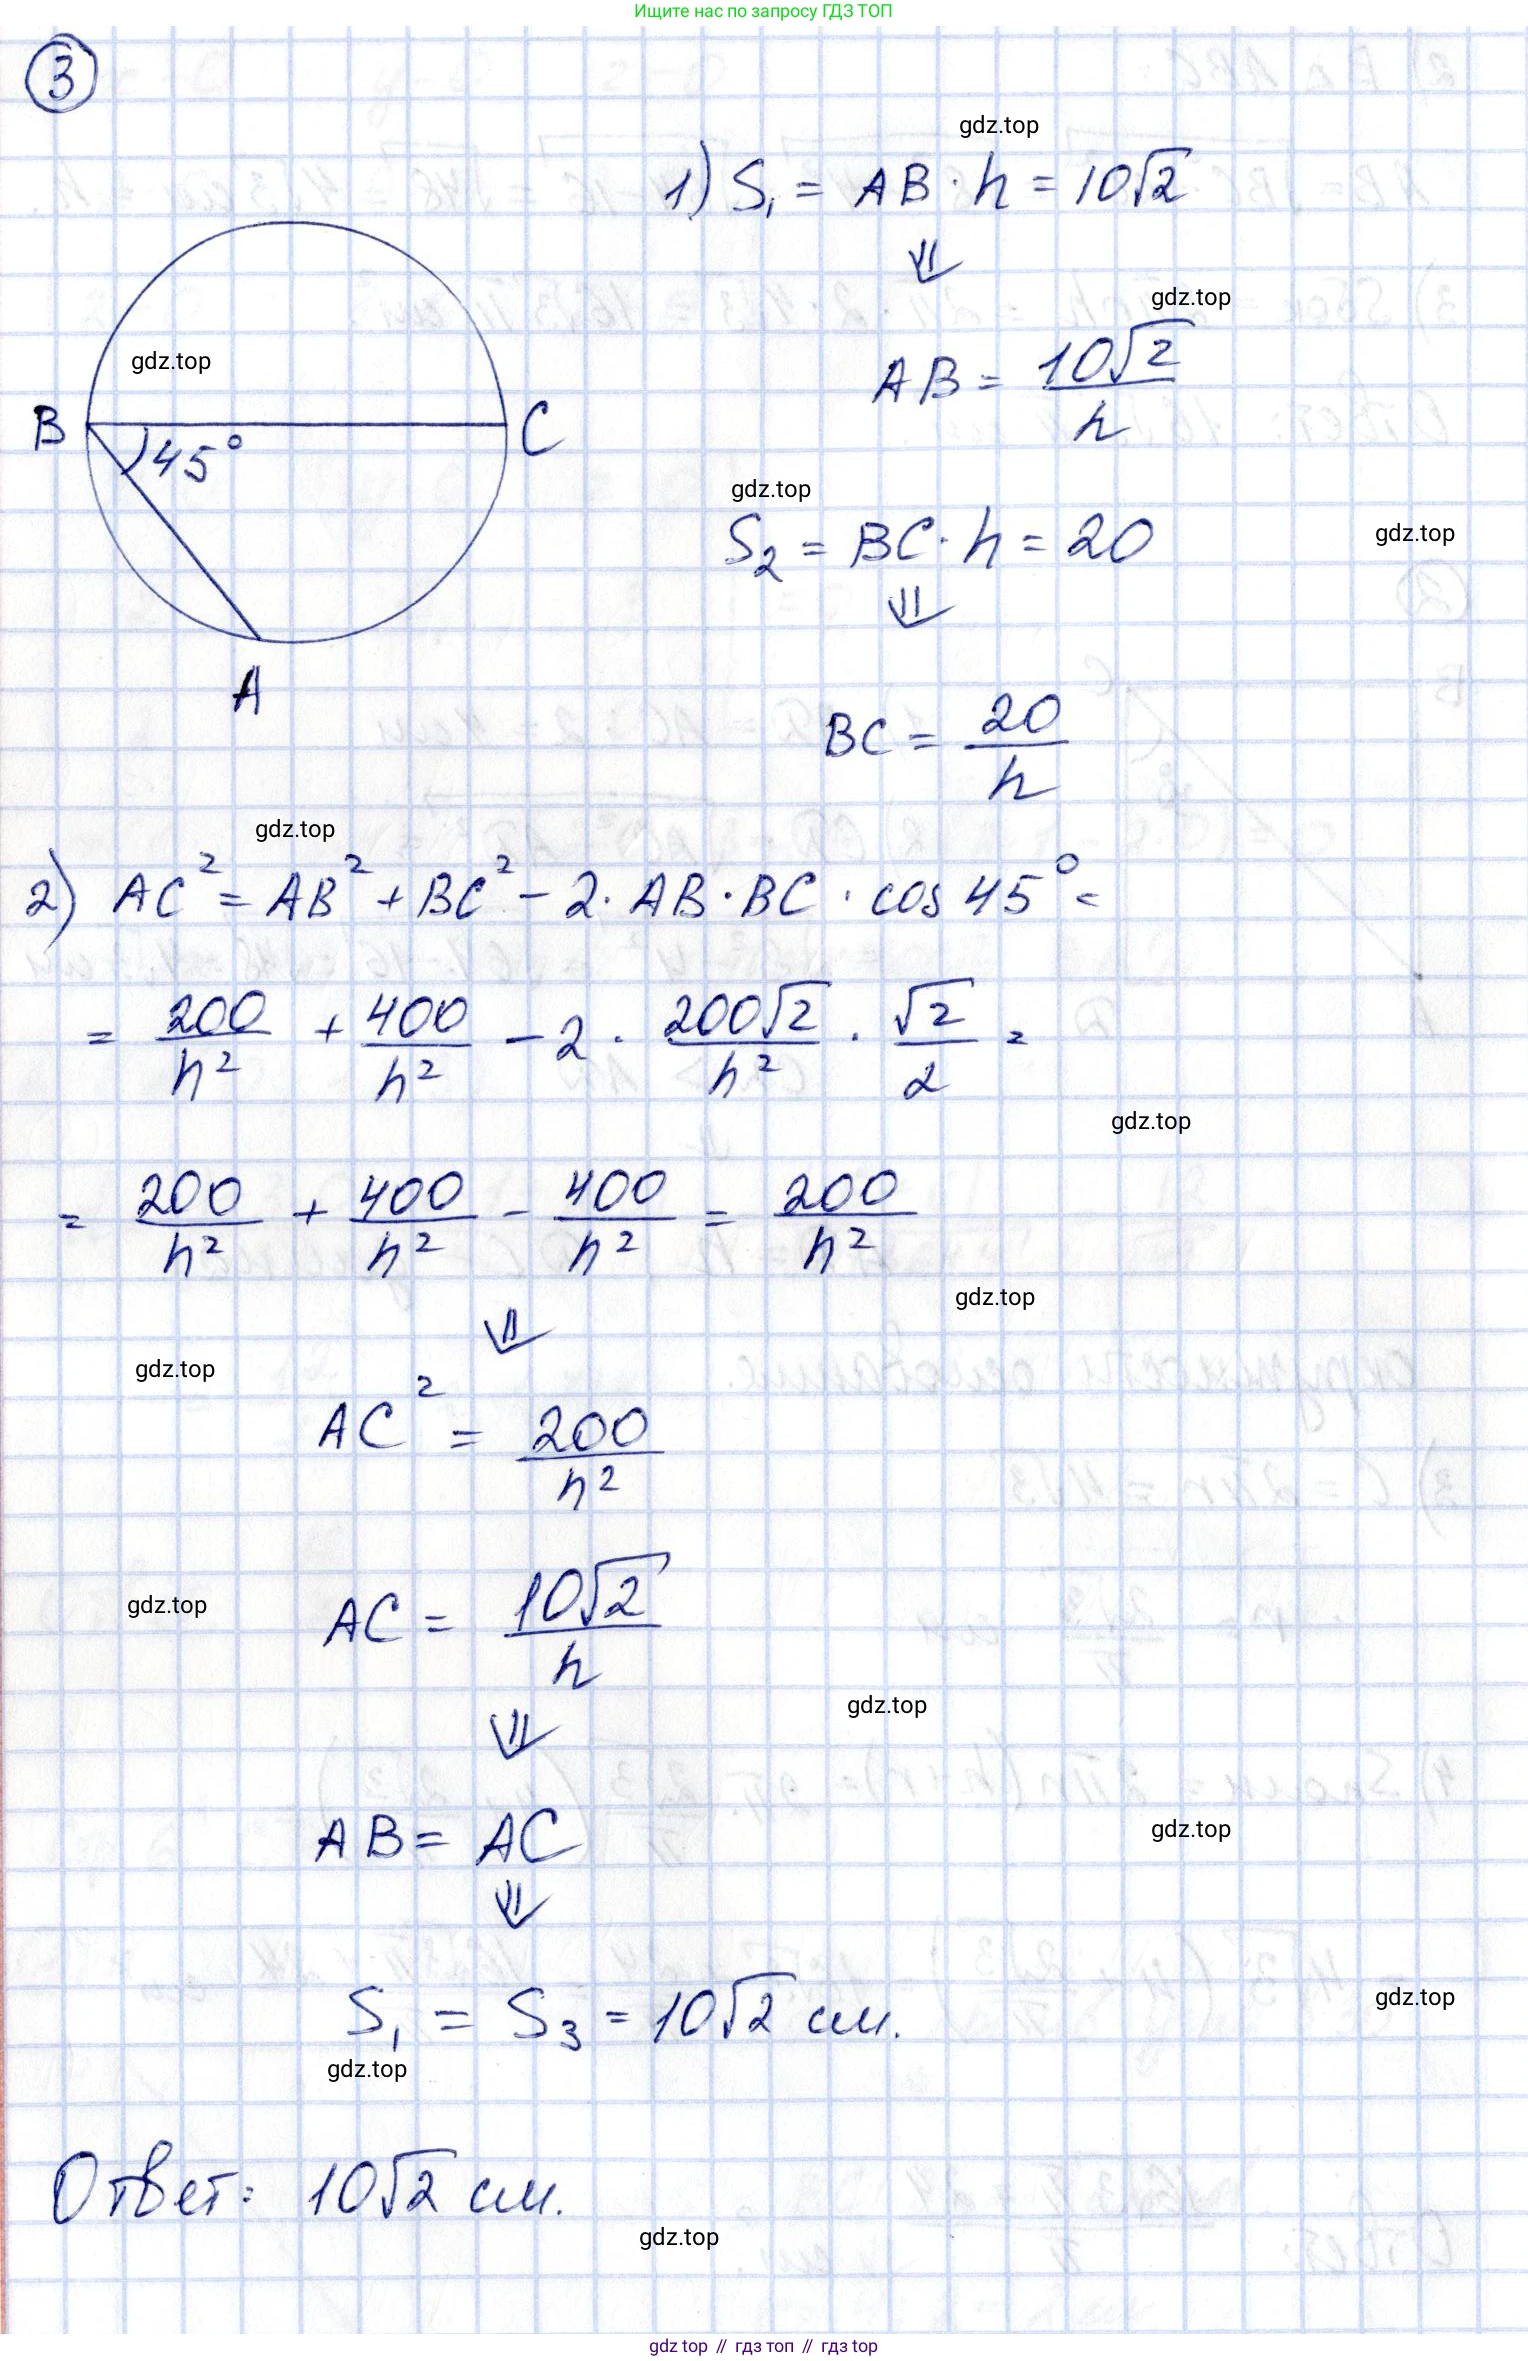 Ищите нас по запросу ГДЗ ТОП
3
gdz.top
1) S₁ = AB · h = 10√2
⇓
gdz.top
AB = 10√2 / h
gdz.top
B
45°
C
A
gdz.top
S₂ = BC · h = 20
gdz.top
⇓
BC = 20 / h
gdz.top
2) AC² = AB² + BC² - 2 · AB · BC · cos 45° =
= 200 / h² + 400 / h² - 2 · 200√2 / h² · √2 / 2 =
gdz.top
= 200 / h² + 400 / h² - 400 / h² = 200 / h²
gdz.top
⇓
gdz.top
AC² = 200 / h²
gdz.top
AC = 10√2 / h
gdz.top
⇓
AB = AC
gdz.top
⇓
S₁ = S₃ = 10√2 см.
gdz.top
gdz.top
Ответ: 10√2 см.
gdz.top
gdz top // гдз топ // гдз top